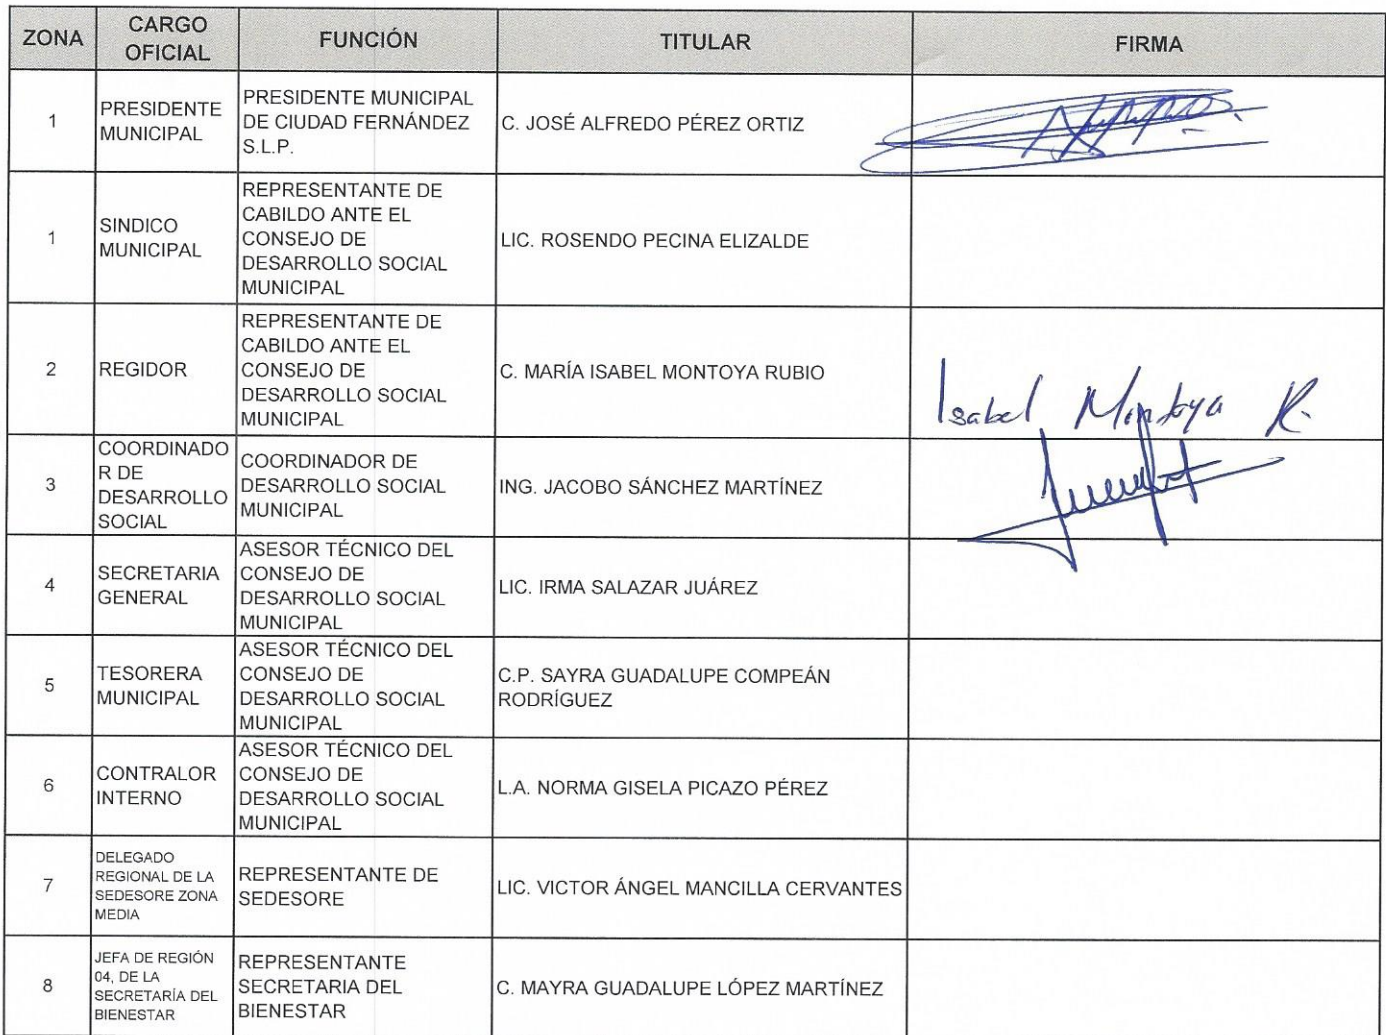 ZONA
CARGO
OFICIAL
FUNCIÓN
TITULAR
FIRMA
1
PRESIDENTE
MUNICIPAL
PRESIDENTE MUNICIPAL
DE CIUDAD FERNÁNDEZ
S.L.P.
C. JOSÉ ALFREDO PÉREZ ORTIZ
1
SINDICO
MUNICIPAL
REPRESENTANTE DE
CABILDO ANTE EL
CONSEJO DE
DESARROLLO SOCIAL
MUNICIPAL
LIC. ROSENDO PECINA ELIZALDE
2
REGIDOR
REPRESENTANTE DE
CABILDO ANTE EL
CONSEJO DE
DESARROLLO SOCIAL
MUNICIPAL
C. MARÍA ISABEL MONTOYA RUBIO
Isabel Montoya R.
3
COORDINADO
R DE
DESARROLLO
SOCIAL
COORDINADOR DE
DESARROLLO SOCIAL
MUNICIPAL
ING. JACOBO SÁNCHEZ MARTÍNEZ
4
SECRETARIA
GENERAL
ASESOR TÉCNICO DEL
CONSEJO DE
DESARROLLO SOCIAL
MUNICIPAL
LIC. IRMA SALAZAR JUÁREZ
5
TESORERA
MUNICIPAL
ASESOR TÉCNICO DEL
CONSEJO DE
DESARROLLO SOCIAL
MUNICIPAL
C.P. SAYRA GUADALUPE COMPEÁN
RODRÍGUEZ
6
CONTRALOR
INTERNO
ASESOR TÉCNICO DEL
CONSEJO DE
DESARROLLO SOCIAL
MUNICIPAL
L.A. NORMA GISELA PICAZO PÉREZ
7
DELEGADO
REGIONAL DE LA
SEDESORE ZONA
MEDIA
REPRESENTANTE DE
SEDESORE
LIC. VICTOR ÁNGEL MANCILLA CERVANTES
8
JEFA DE REGIÓN
04, DE LA
SECRETARÍA DEL
BIENESTAR
REPRESENTANTE
SECRETARIA DEL
BIENESTAR
C. MAYRA GUADALUPE LÓPEZ MARTÍNEZ